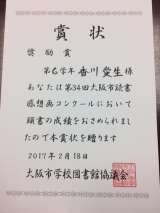 賞状
奨励賞
第6学年 香川 愛生 様
あなたは第34回大阪市読書
感想画コンクールにおいて
頭書の成績をおさめられまし
たので本賞状を贈ります
2017年2月18日
大阪市学校図書館協議会